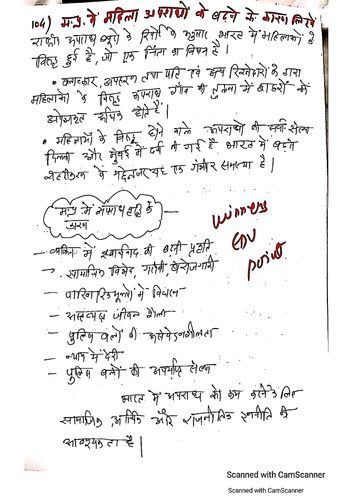 104) म.प्र. में महिला अपराधों के बढने के कारण लिखे
राष्ट्रीय अपराध ब्यूरो के रिपोर्ट के अनुसार भारत में महिलाओं के
विरुद्ध हुई है, जो एक चिंता का विषय है।
• बलात्कार, अपहरण तथा पति एवं अन्य रिश्तेदारों के द्वारा
महिलाओं के विरुद्ध अपराध गाँव की तुलना में शहरों में
अधिक होते हैं।
• महिलाओं के विरुद्ध होने वाले अपराधों की संख्या
दिल्ली और मुंबई में दर्ज की गई है भारत में बढते
शहरीकरण के मद्देनजर यह एक गंभीर समस्या है।
म.प्र. में अपराध वृद्धि के
कारण
winners
EDU
point
– व्यक्ति में स्वार्थवाद की बढती प्रवृति
– सामाजिक विभेद, गरीबी, बेरोजगारी
– पारिवारिक मूल्यों में विघटन
– अस्तव्यस्त जीवन शैली
– पुलिस बलों की असंवेदनशीलता
– न्याय में देरी
– पुलिस बलों की अपर्याप्त संख्या
भारत में अपराध को कम करने के लिए
सामाजिक, आर्थिक और राजनीतिक रणनीति की
आवश्यकता है।
Scanned with CamScanner
Scanned with CamScanner